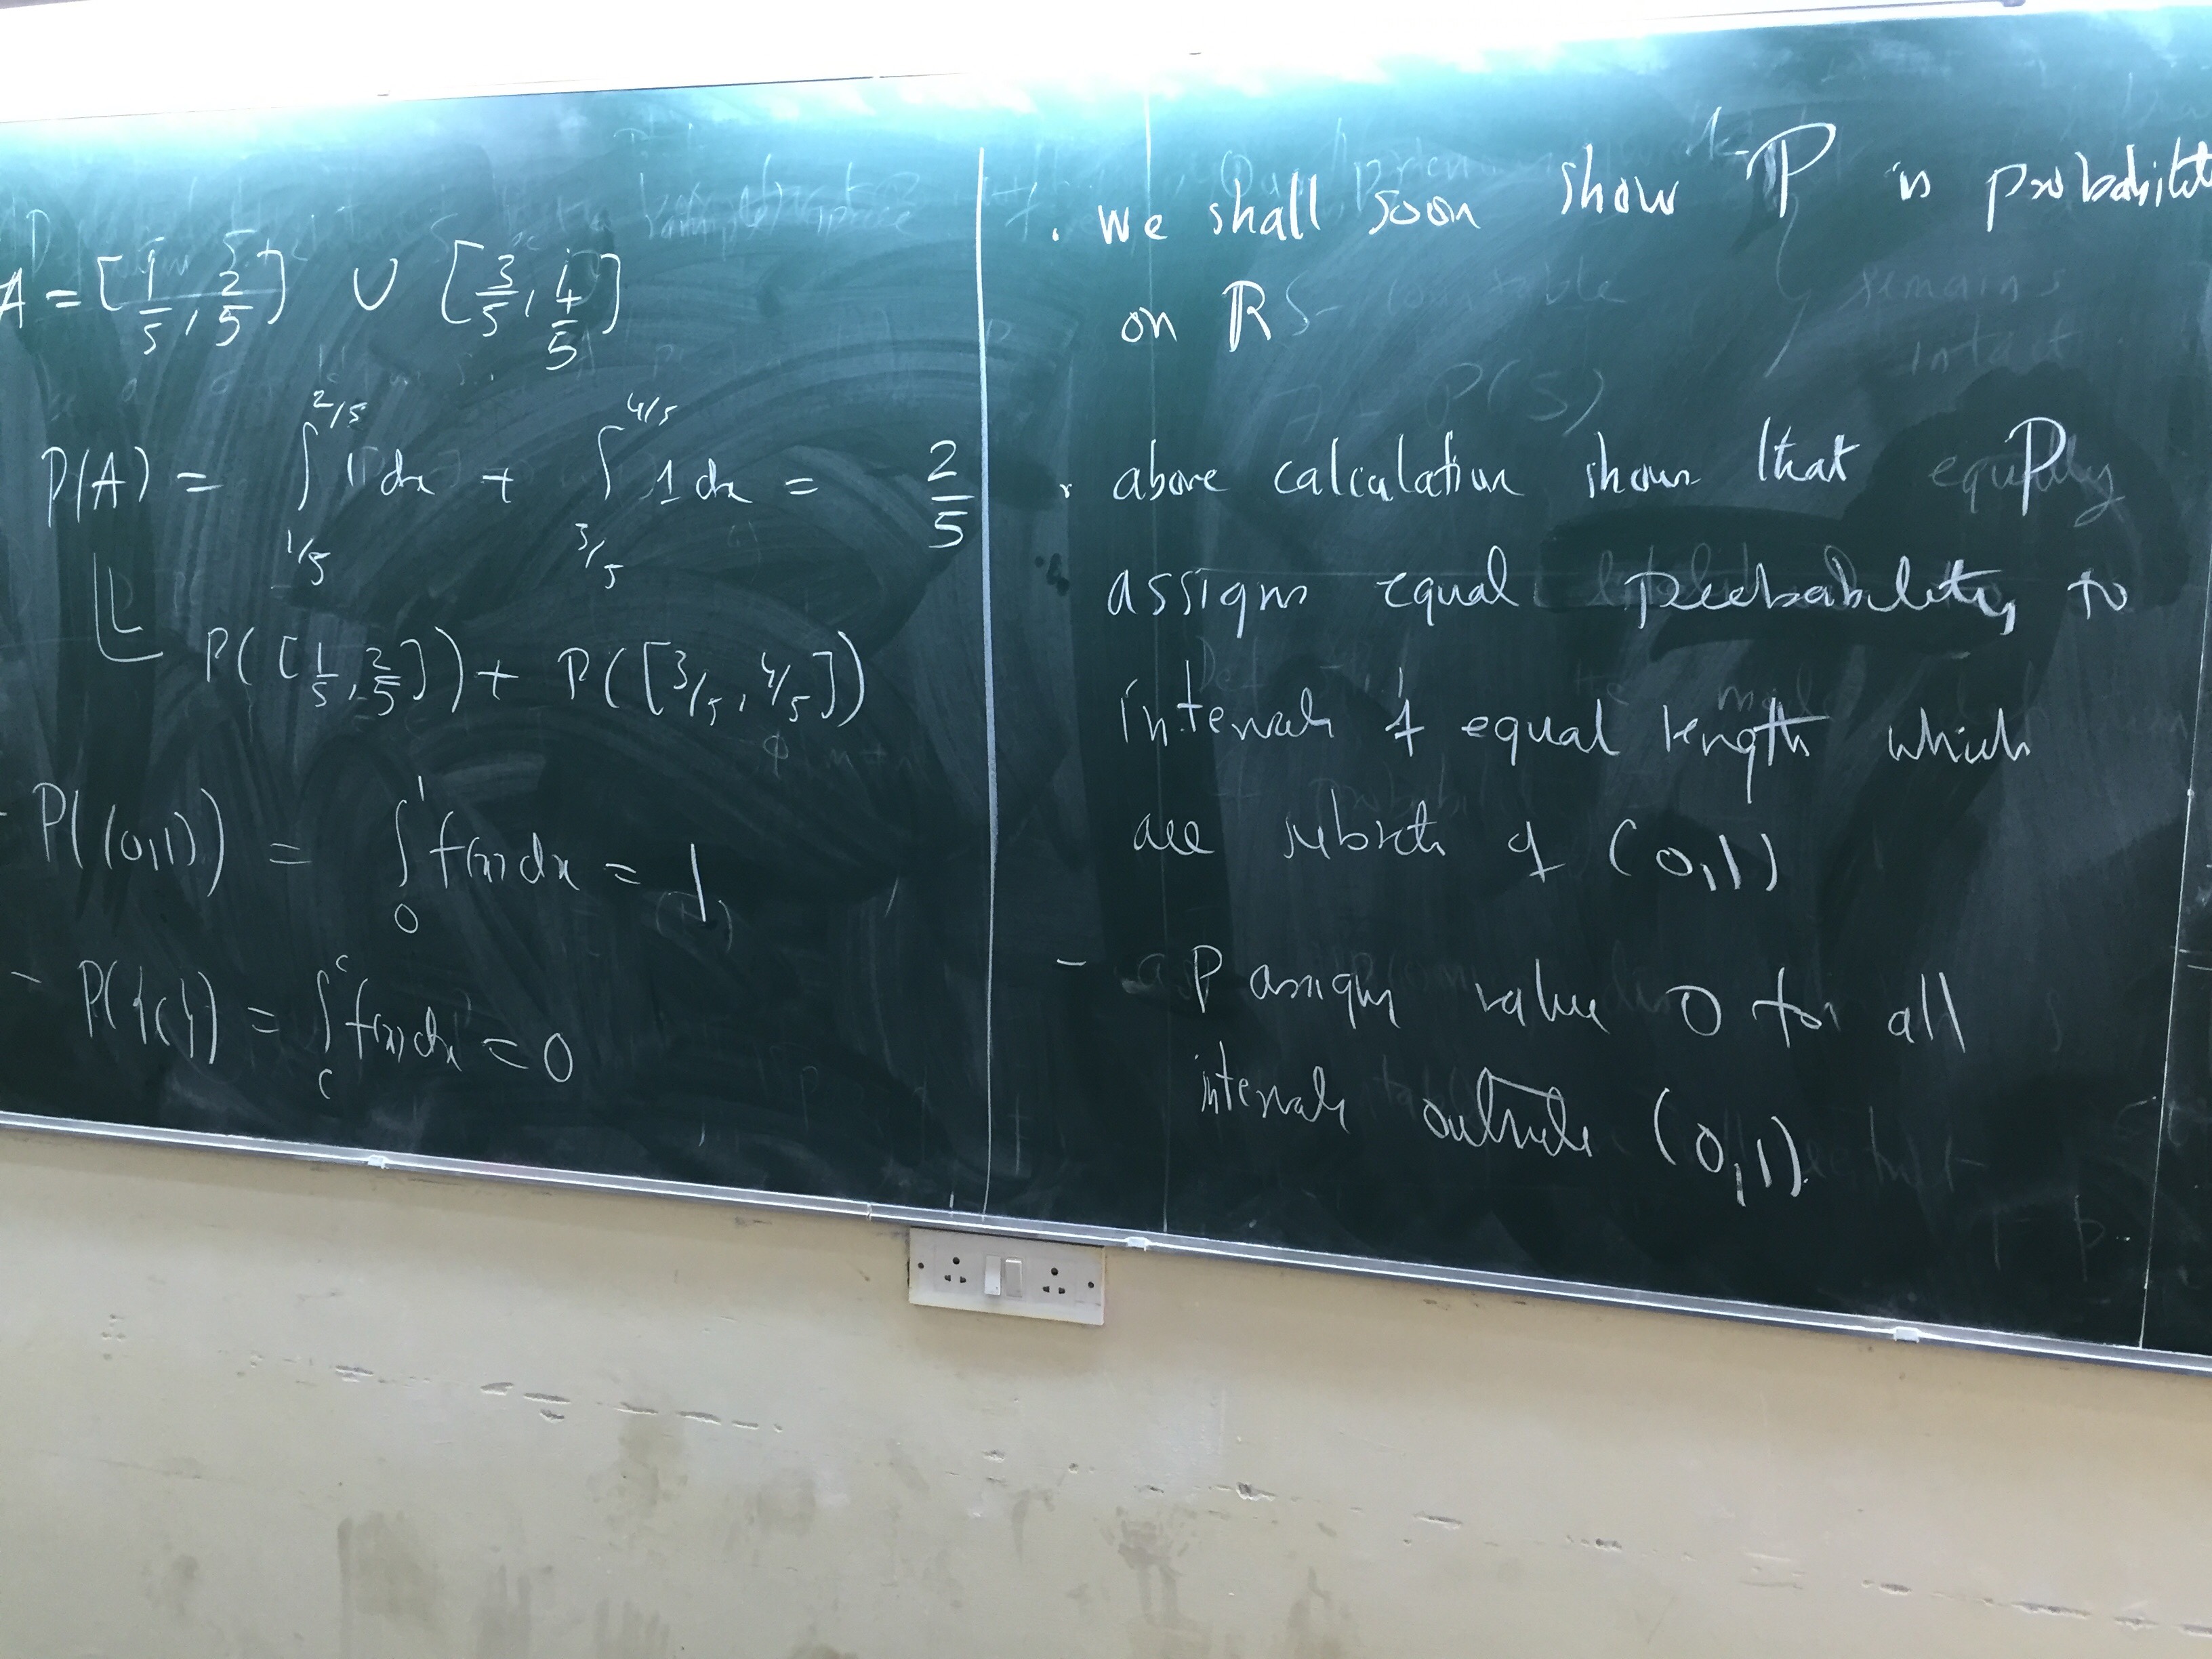 A = [1/5, 2/5] ∪ [3/5, 4/5]
P(A) = ∫_{1/5}^{2/5} 1 dx + ∫_{3/5}^{4/5} 1 dx = 2/5
P([1/5, 2/5]) + P([3/5, 4/5])
- P((0,1)) = ∫_0^1 f(x) dx = 1
- P({c}) = ∫_c^c f(x) dx = 0
. we shall soon show P is probabilit
on ℝ
. above calculation shows that P
assigns equal probability to
intervals of equal length which
are subsets of (0,1)
- P assigns value 0 for all
intervals outside (0,1).